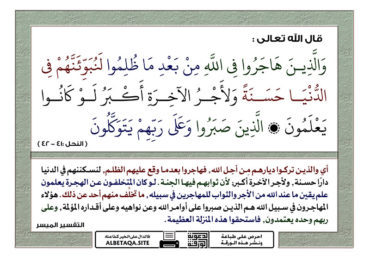 قال الله تعالى :
وَالَّذِينَ هَاجَرُوا فِي اللَّهِ مِنْ بَعْدِ مَا ظُلِمُوا لَنُبَوِّئَنَّهُمْ فِي
الدُّنْيَا حَسَنَةً وَلَأَجْرُ الْآخِرَةِ أَكْبَرُ لَوْ كَانُوا
يَعْلَمُونَ ۞ الَّذِينَ صَبَرُوا وَعَلَى رَبِّهِمْ يَتَوَكَّلُونَ
( النحل ٤١ - ٤٢ )
أي والذين تركوا ديارهم من أجل الله، فهاجروا بعدما وقع عليهم الظلم, لنسكننهم في الدنيا
دارًا حسنة, ولأجر الآخرة أكبر; لأن ثوابهم فيها الجنة. لو كان المتخلفون عن الهجرة يعلمون
علم يقين ما عند الله من الأجر والثواب للمهاجرين في سبيله، ما تخلَّف منهم أحد عن ذلك. هؤلاء
المهاجرون في سبيل الله هم الذين صبروا على أوامر الله وعن نواهيه وعلى أقداره المؤلمة، وعلى
ربهم وحده يعتمدون, فاستحقوا هذه المنزلة العظيمة.
التفسير الميسر
احرص على طباعة
ونشر هذه الورقة
فالدال على الخير كفاعله
ALBETAQA.SITE